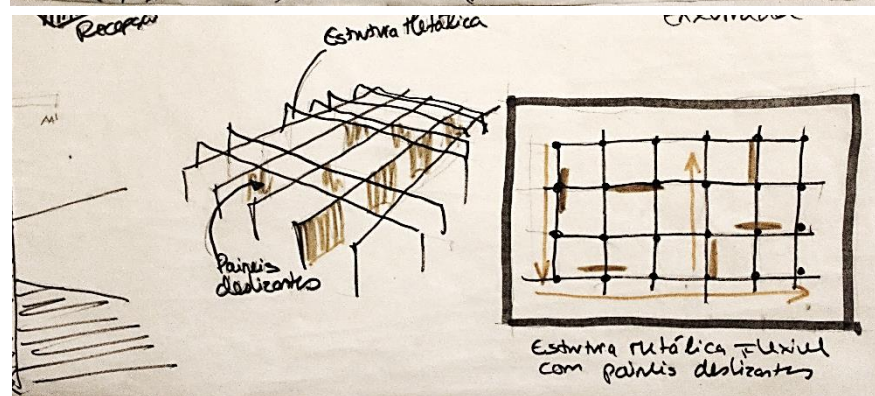 Recepção
Estrutura Metálica
Paineis
deslizantes
Estrutura Metálica Flexível
com paineis deslizantes